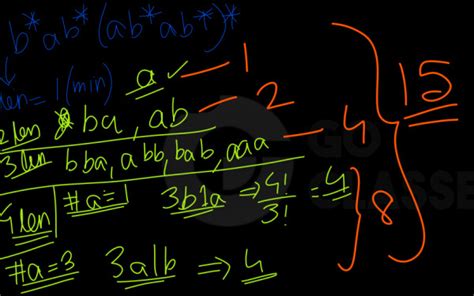 b*ab*(ab*ab*)*
len = 1 (min) a ✓ 1
2 len ba, ab 2
3 len bba, abb, bab, aaa 4
4 len #a=1 3b1a ⇒ 4!/3! = 4
#a=3 3a1b ⇒ 4
8
15
GO
CLASSES